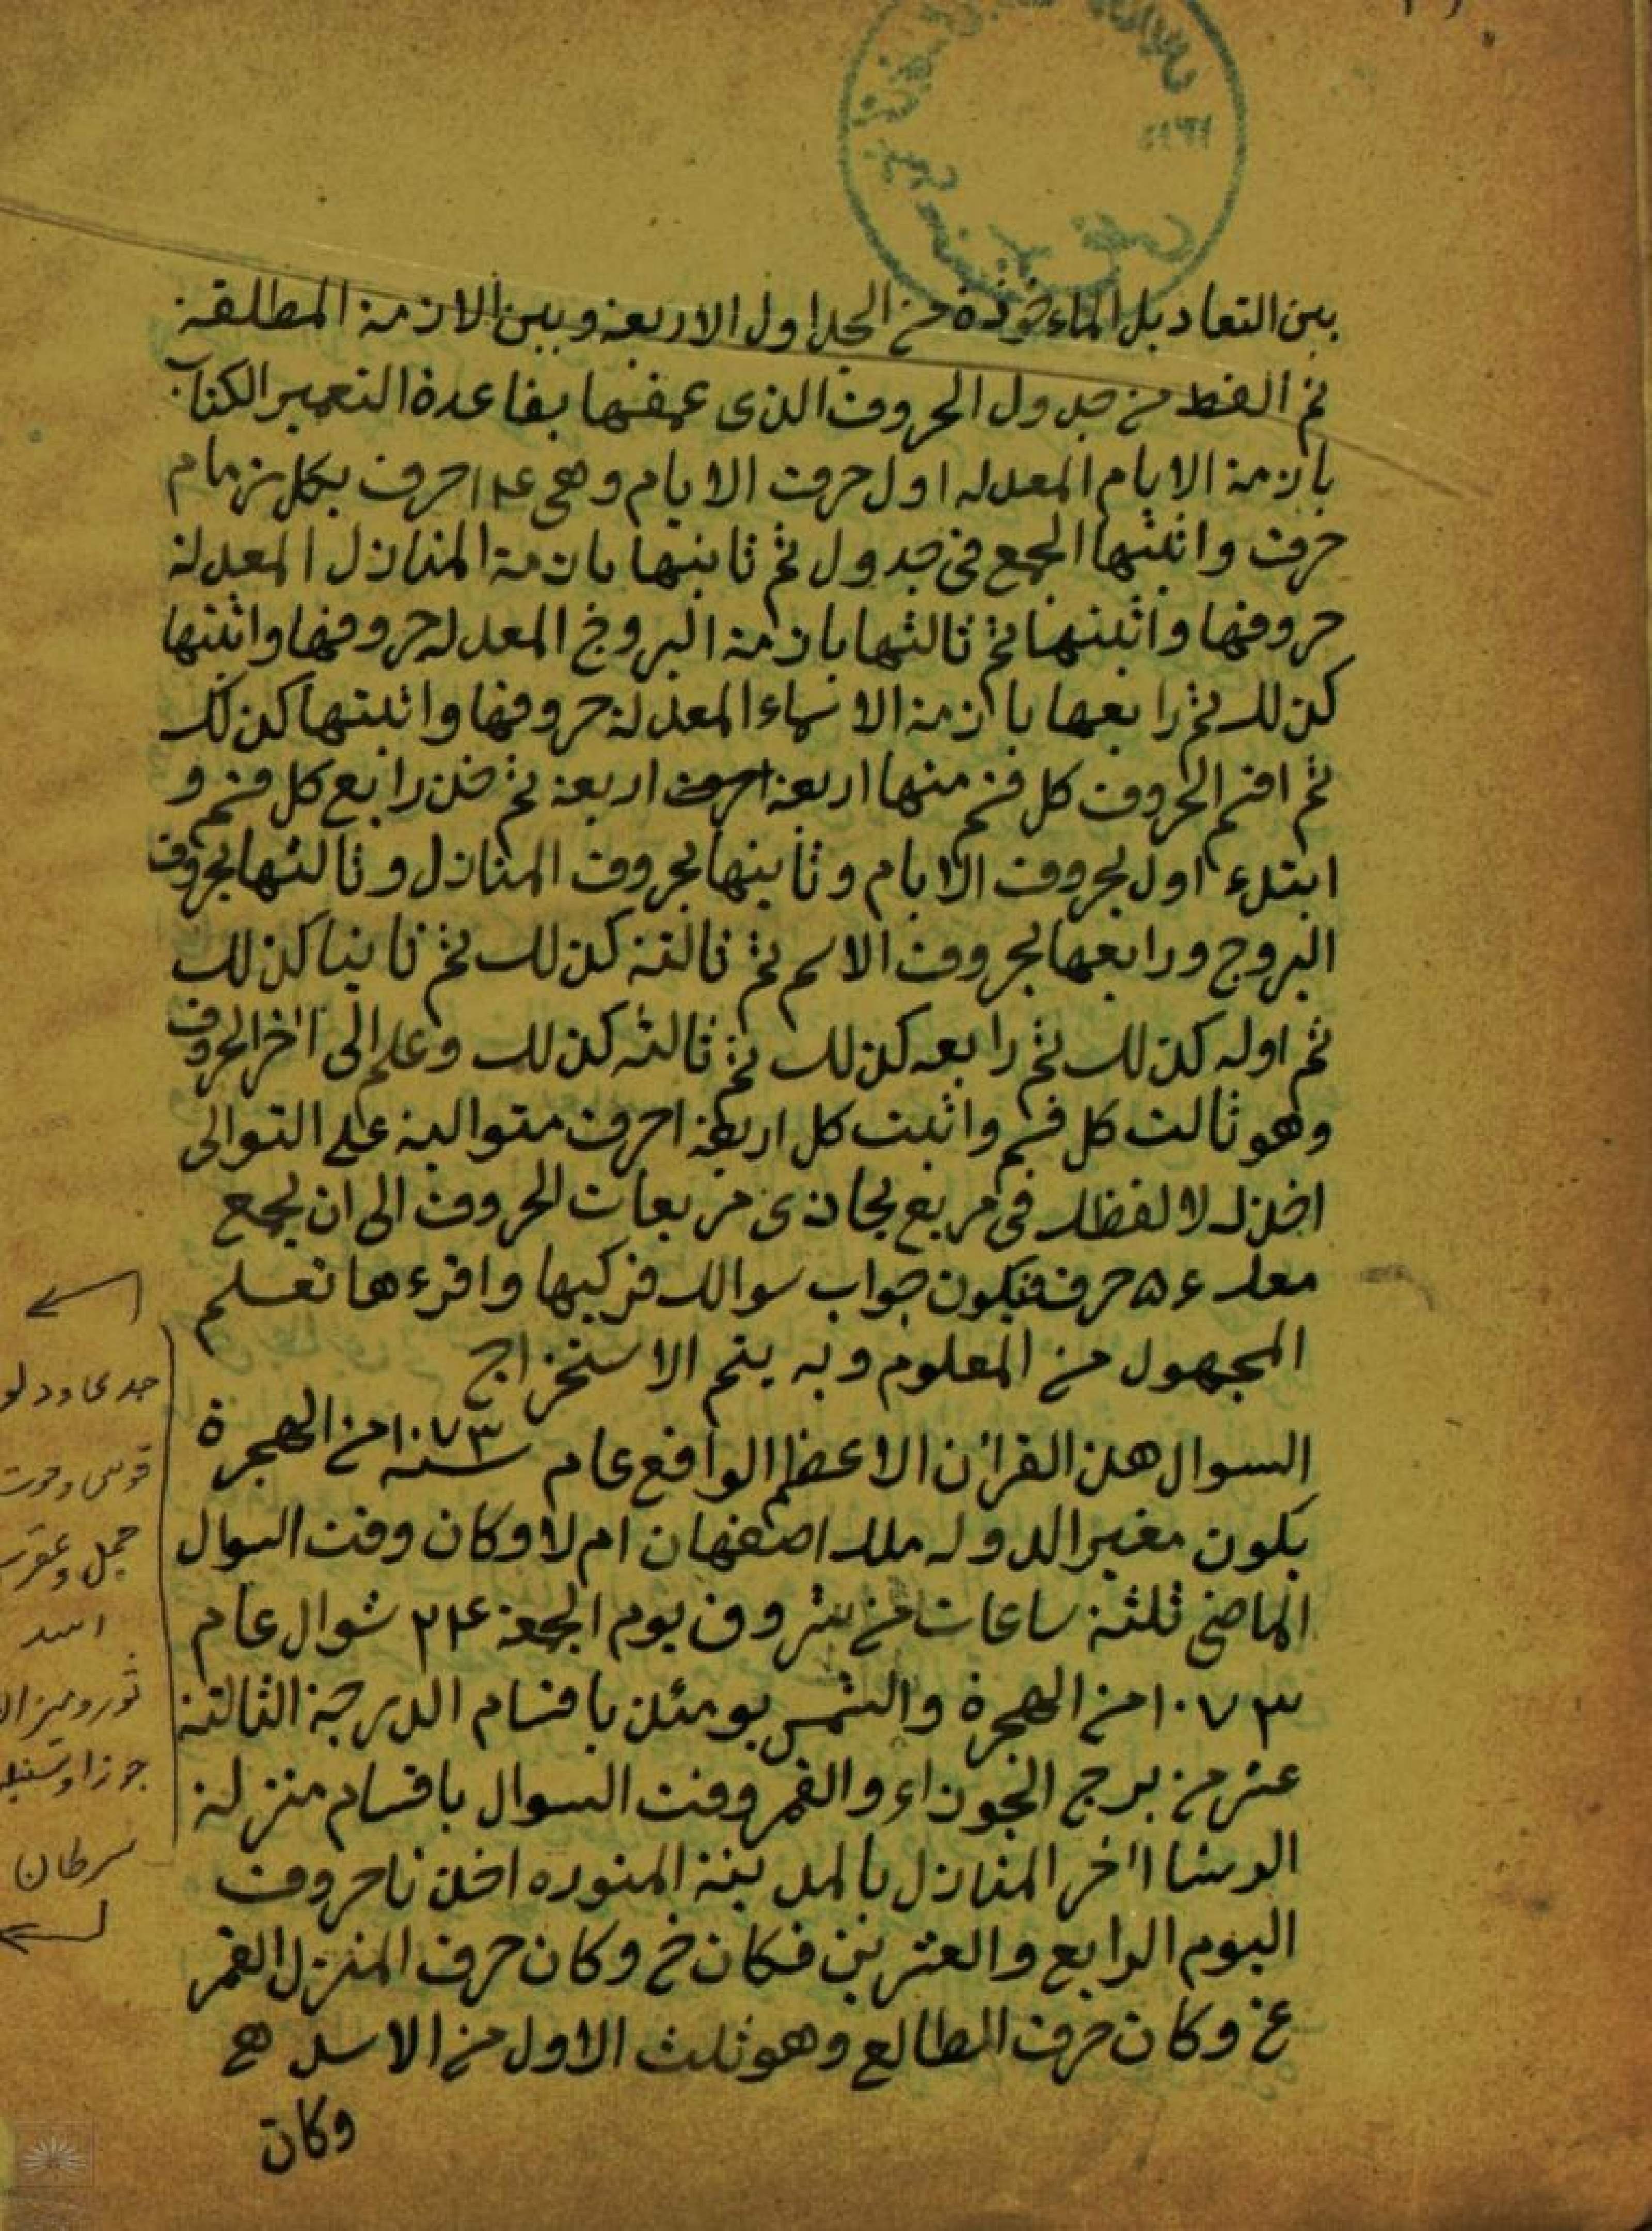 بين التعاديل الماءخوذة من الجداول الاربعة وبين الازمنة المطلقة
ثم القط من جدول الحروف الذى عمقها بقاعدة التعمير الكتاب
بازمنة الايام المعدله اول حرف الايام وهى ١٤ احرف بكل زمام
حرف واثبتها الجمع فى جدول ثم ثانيها بازمنة المنازل المعدلة
حروفها واثبتها ثم ثالثها بازمنة البروج المعدله حروفها واثبتها
كذلك ثم رابعها بازمنة الاسماء المعدلة حروفها واثبتها كذلك
ثم اقسم الحروف كل قسم منها اربعة احرف اربعة ثم خذ رابع كل قسم و
ابتدء اول بحروف الايام وثانيها بحروف المنازل وثالثها بحروف
البروج ورابعها بحروف الاسم ثم ثالثة كذلك ثم ثانيا كذلك
ثم اوله كذلك ثم رابعه كذلك ثم ثالثه كذلك وعلم الى اخر الحروف
وهو ثالث كل قسم واثبت كل اربعة احرف متوالية على التوالى
اخذك لالقطك فى مربع يحاذى مربعات الحروف الى ان يجمع
معك ٥٤ حرف فتكون جواب سوالك فركبها واقرءها تعلم
المجهول من المعلوم وبه يتم الاستخراج
السوال هذا القرائن الاعظم الواقع عام سنة ١٠٧٣ من الهجرة
يكون مغير الدوله ملك اصفهان ام لا وكان وقت السوال
الماضى ثلثة ساعات من شروق يوم الجمعة ٢٤ شوال عام
١٠٧٣ من الهجرة والشمس يومئذ باقسام الدرجة الثالثة
عشر من برج الجوزاء والقمر وقت السوال باقسام منزلة
الرشا اخر المنازل بالمدينة المنوره اخذنا حروف
اليوم الرابع والعشرين فكان خ وكان حرف المنزل القمر
غ وكان حرف الطالع وهو ثلث الاول من الاسد هـ
وكان
جدى ودلو
قوس وحوت
حمل وعقرب
اسد
ثور وميزان
جوزا وسنبله
سرطان